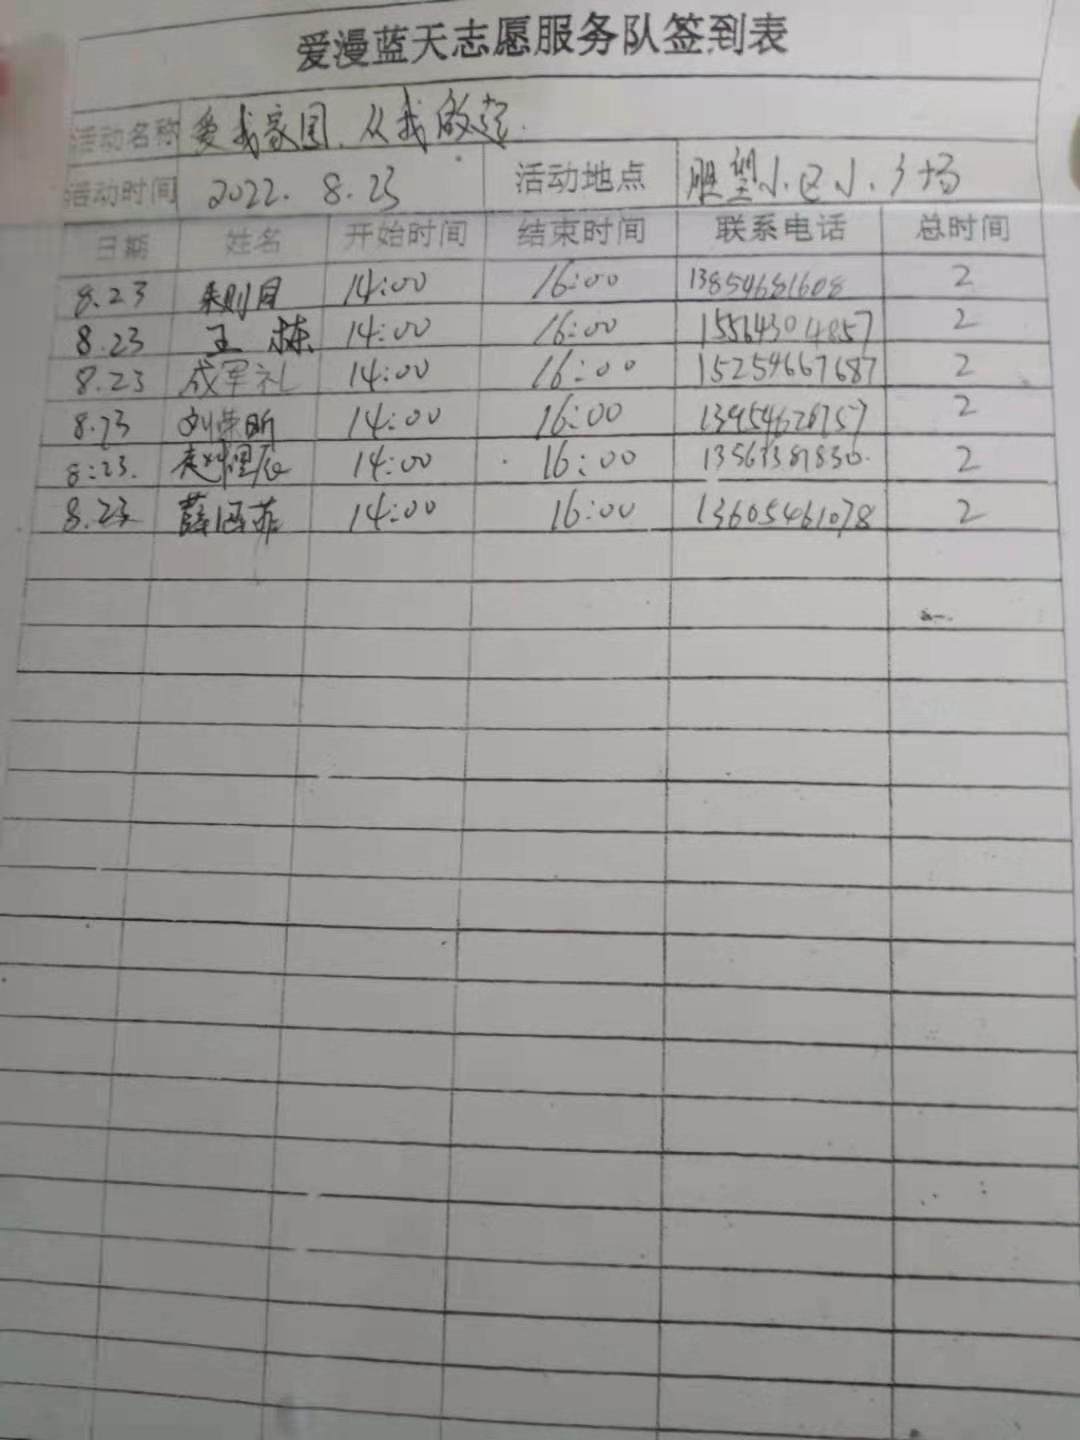 爱漫蓝天志愿服务队签到表
活动名称 爱我家园、从我做起.
活动时间 2022. 8.23 活动地点 胜望小区小广场
日期 姓名 开始时间 结束时间 联系电话 总时间
8.23 14:00 16:00 13854681608 2
8.23 王栋 14:00 16:00 15564304857 2
8.23 成军礼 14:00 16:00 15254667687 2
8.23 刘荣昕 14:00 16:00 2
8:23. 14:00 16:00 2
8.23 薛涵菲 14:00 16:00 13605461078 2